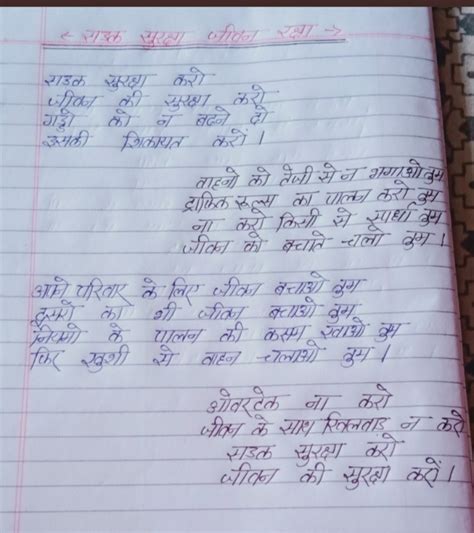 ← सडक सुरक्षा जीवन रक्षा →
सडक सुरक्षा करो
जीवन की सुरक्षा करो
गड्डो को न बढने दो
उसकी शिकायत करों ।
वाहनो को तेजी से न भगाओ तुम
ट्राफिक रूल्स का पालन करो तुम
ना करो किसी से स्पर्धा तुम
जीवन को बचाते चलो तुम ।
अपने परिवार के लिए जीवन बचाओ तुम
दूसरों का भी जीवन बचाओ तुम
नियमो के पालन की कसम खाओ तुम
फिर खुशी से वाहन चलाओ तुम ।
ओवरटेक ना करो
जीवन के साथ खिलवाड न करो
सडक सुरक्षा करो
जीवन की सुरक्षा करों ।